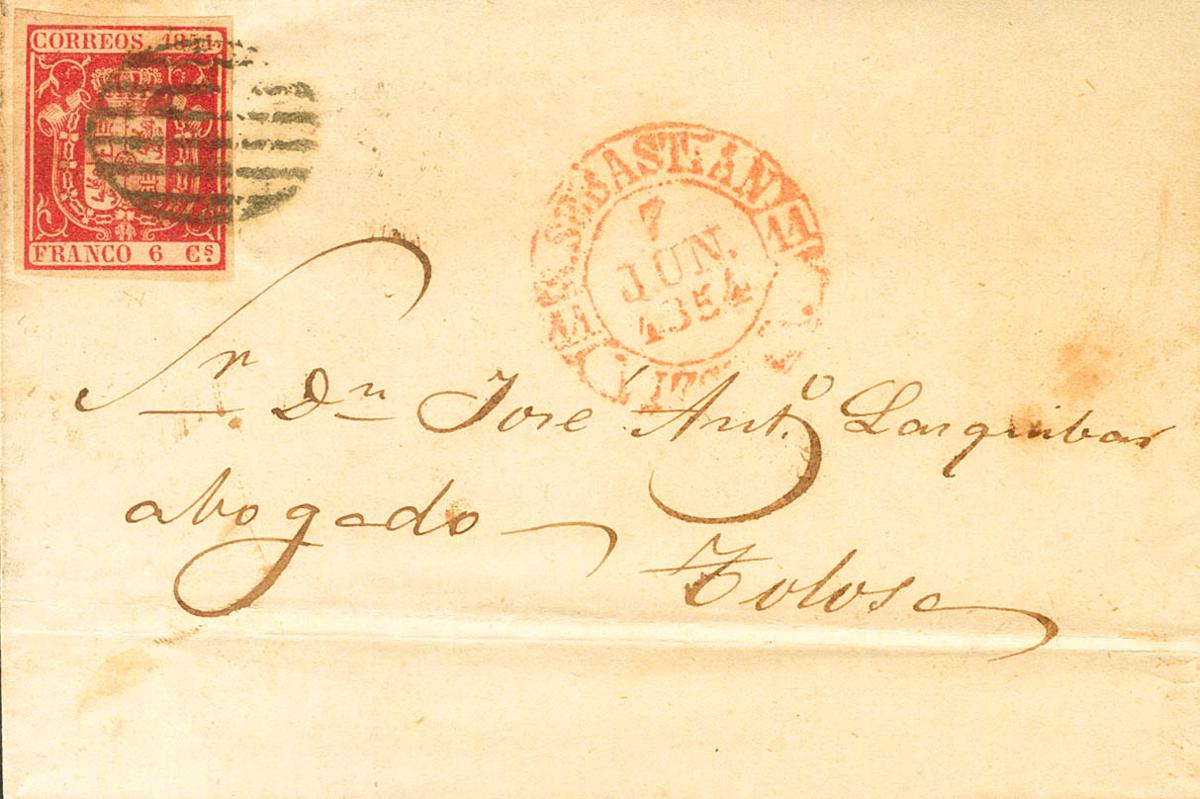 CORREOS 1854
FRANCO 6 Cs.
S. SEBASTIAN 11
7
JUN.
1854
Sr Dn Jose Anto. Larquibar
abogado
Tolosa